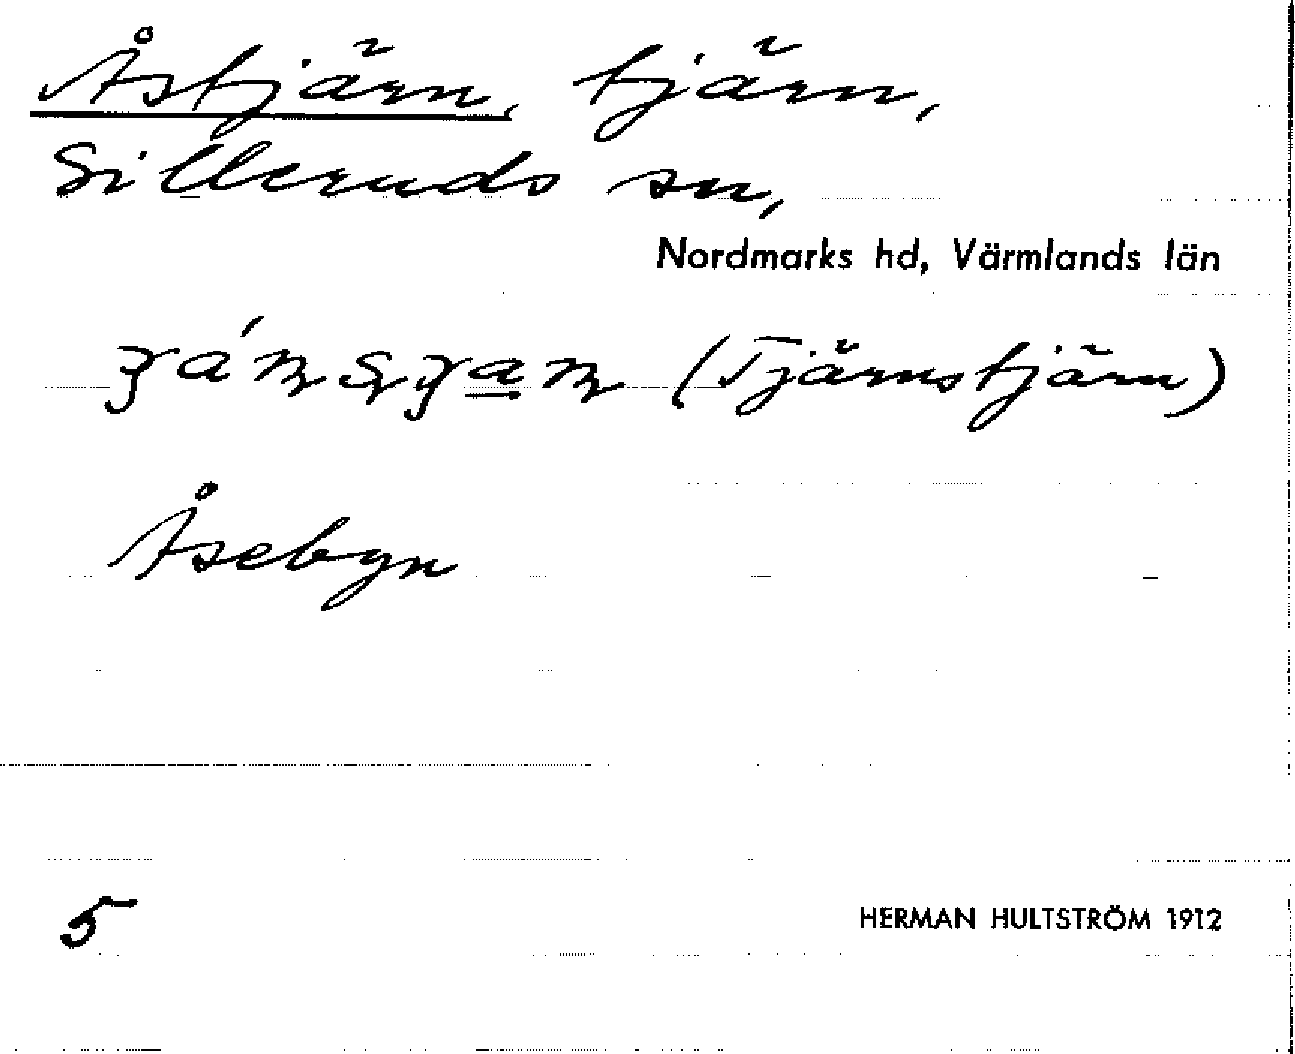 Åstjärn, tjärn,
Silleruds sn,
Nordmarks hd, Värmlands län
(Tjärnstjärn)
Åsebyn
5
HERMAN HULTSTRÖM 1912